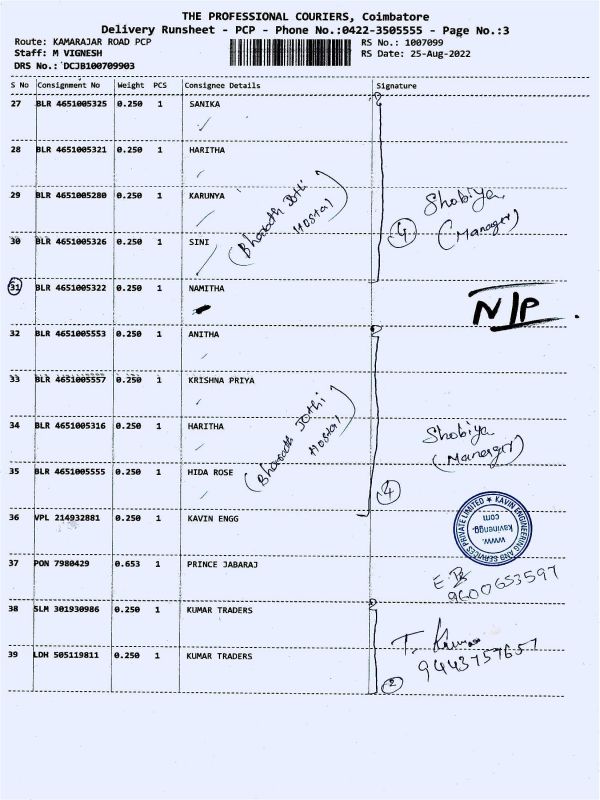 THE PROFESSIONAL COURIERS, Coimbatore
Delivery Runsheet - PCP - Phone No.:0422-3505555 - Page No.:3
Route: KAMARAJAR ROAD PCP RS No.: 1007099
Staff: M VIGNESH RS Date: 25-Aug-2022
DRS No.: DCJB100709903
S No Consignment No Weight PCS Consignee Details Signature
27 BLR 4651005325 0.250 1 SANIKA
28 BLR 4651005321 0.250 1 HARITHA
29 BLR 4651005280 0.250 1 KARUNYA
(Bharath Jothi Hostal)
4 Shobiya
(Manager)
30 BLR 4651005326 0.250 1 SINI
31 BLR 4651005322 0.250 1 NAMITHA
N/P.
32 BLR 4651005553 0.250 1 ANITHA
33 BLR 4651005557 0.250 1 KRISHNA PRIYA
34 BLR 4651005316 0.250 1 HARITHA
(Bharath Jothi Hostal)
Shobiya
(Manager)
35 BLR 4651005555 0.250 1 HIDA ROSE
4
36 VPL 214932881 0.250 1 KAVIN ENGG
KAVIN ENGINEERING AND SERVICES PRIVATE LIMITED
www.
kavinengg.
com
37 PON 7980429 0.653 1 PRINCE JABARAJ
9600653597
38 SLM 301930986 0.250 1 KUMAR TRADERS
T. Kumar
9443757657
39 LDH 505119811 0.250 1 KUMAR TRADERS
2